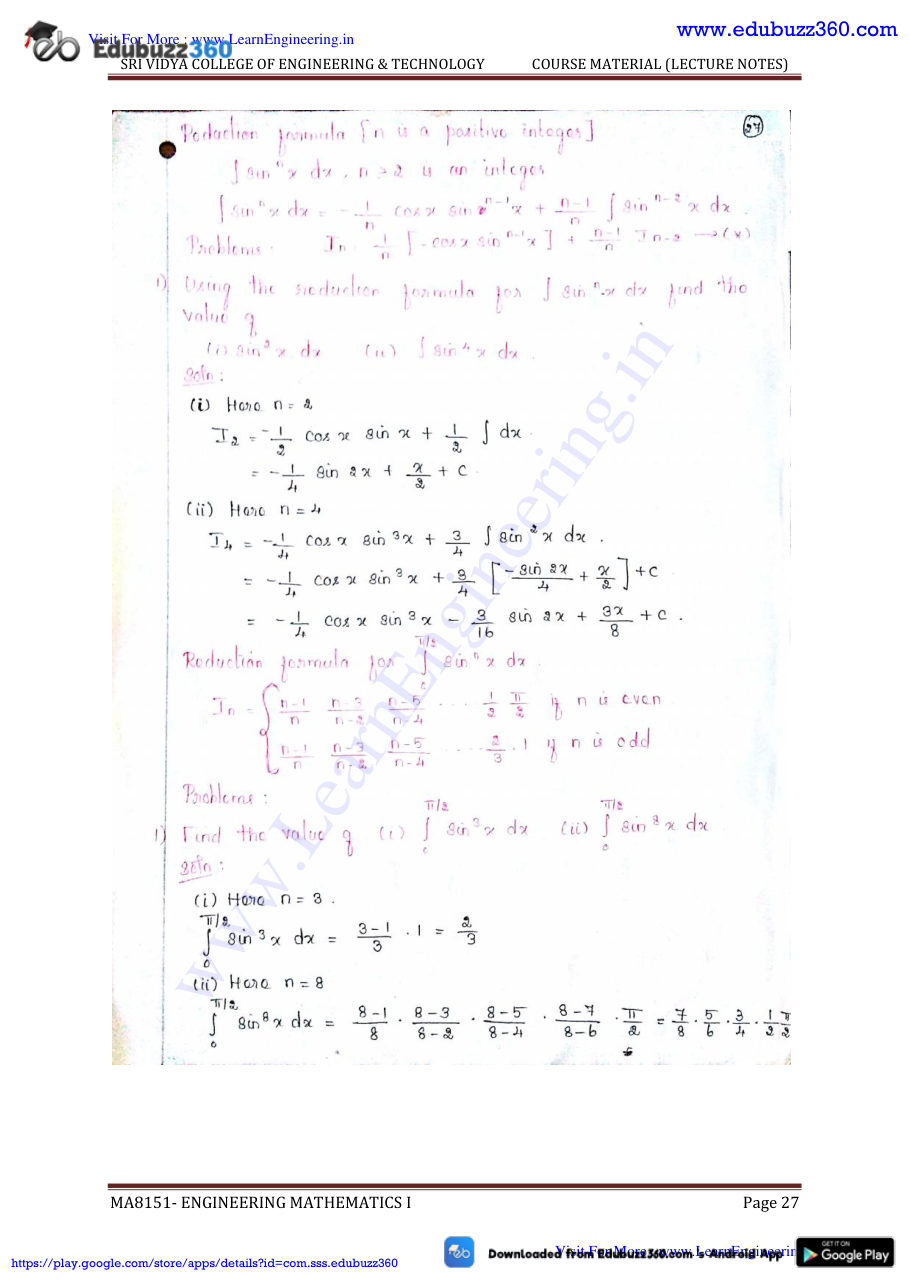 Visit For More : www.LearnEngineering.in
www.edubuzz360.com
Edubuzz360
SRI VIDYA COLLEGE OF ENGINEERING & TECHNOLOGY COURSE MATERIAL (LECTURE NOTES)
27
Reduction formula [n is a positive integer]
∫ sin^n x dx, n ≥ 2 is an integer
∫ sin^n x dx = -1/n cos x sin^{n-1} x + (n-1)/n ∫ sin^{n-2} x dx.
Problems. I_n = 1/n [-cos x sin^{n-1} x] + (n-1)/n I_{n-2} → (x)
1) Using the reduction formula for ∫ sin^n x dx find the
value of
(i) sin² x dx (ii) ∫ sin⁴ x dx.
Soln:
(i) Here n = 2
I₂ = -1/2 cos x sin x + 1/2 ∫ dx.
= -1/4 sin 2x + x/2 + C.
(ii) Here n = 4
I₄ = -1/4 cos x sin³ x + 3/4 ∫ sin² x dx.
= -1/4 cos x sin³ x + 3/4 [-sin 2x/4 + x/2] + C
= -1/4 cos x sin³ x - 3/16 sin 2x + 3x/8 + C.
Reduction formula for ∫_0^{π/2} sin^n x dx.
I_n = { (n-1)/n (n-3)/(n-2) (n-5)/(n-4) .... 1/2 π/2 if n is even
(n-1)/n (n-3)/(n-2) (n-5)/(n-4) .... 2/3 . 1 if n is odd
Problems:
1) Find the value of (i) ∫_0^{π/2} sin³ x dx (ii) ∫_0^{π/2} sin⁸ x dx
Soln:
(i) Here n = 3.
∫_0^{π/2} sin³ x dx = (3-1)/3 . 1 = 2/3
(ii) Here n = 8
∫_0^{π/2} sin⁸ x dx = (8-1)/8 . (8-3)/(8-2) . (8-5)/(8-4) . (8-7)/(8-6) . π/2 = 7/8 . 5/6 . 3/4 . 1/2 π/2
www.LearnEngineering.in
MA8151- ENGINEERING MATHEMATICS I Page 27
Downloaded from Edubuzz360.com's Android App
Visit For More : www.LearnEngineerin
GET IT ON
Google Play
https://play.google.com/store/apps/details?id=com.sss.edubuzz360